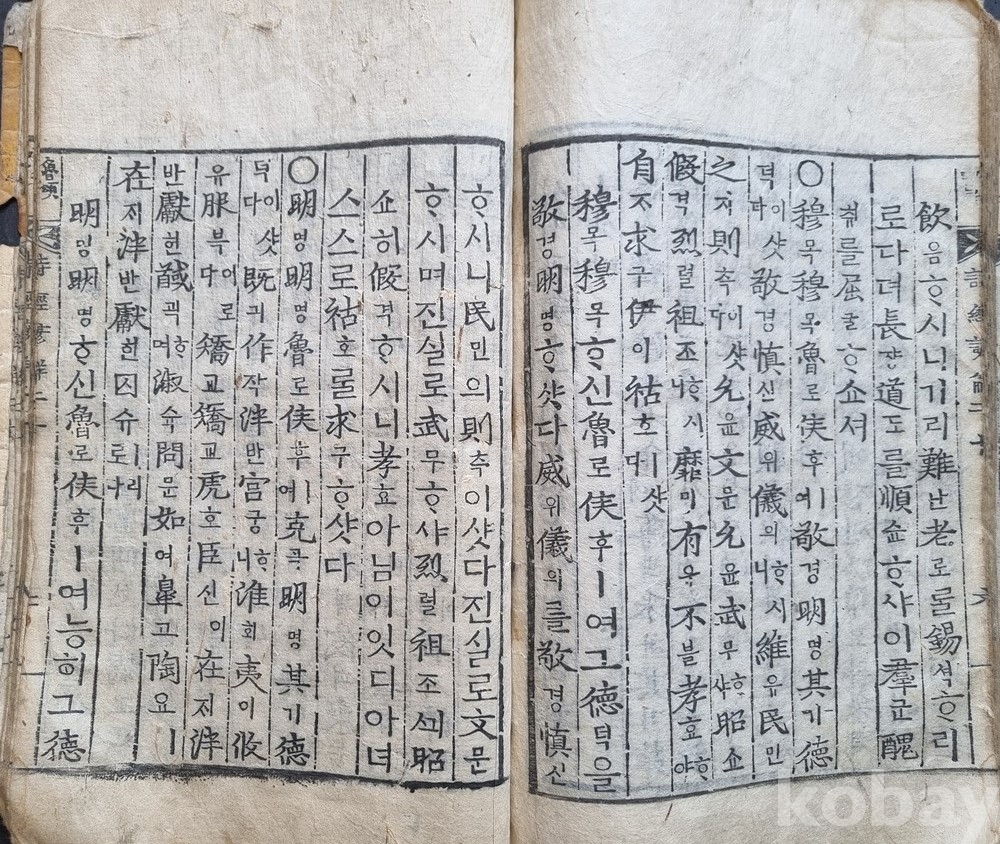 飮음ᄒᆞ시니기리難난老로ᄅᆞᆯ錫셕ᄒᆞ리
로다뎌長댱道도를順슌ᄒᆞ샤이羣군醜
취를屈굴ᄒᆞ쇼셔
○穆목穆목魯로侯후ㅣ여敬경明명其기德
덕이샷다敬경愼신威위儀의ᄒᆞ시니維유民민
之지則측이샷다允윤文문允윤武무ᄒᆞ샤昭쇼
假격烈렬祖조ᄒᆞ시니靡미有유不블孝효ᄒᆞ야
自ᄌᆞ求구伊이祜호ㅣ샷다
穆목穆목ᄒᆞ신魯로侯후ㅣ여그德덕을
敬경明명ᄒᆞ샷다威위儀의를敬경愼신
ᄒᆞ시니民민의則측이샷다진실로文문
ᄒᆞ시며진실로武무ᄒᆞ샤烈렬祖조ᄭᅴ昭
쇼히假격ᄒᆞ시니孝효아님이잇디아녀
스스로祜호ᄅᆞᆯ求구ᄒᆞ샷다
○明명明명魯로侯후ㅣ여克극明명其기德
덕이샷다旣긔作작泮반宮궁ᄒᆞ니淮회夷이攸
유服복이로다矯교矯교虎호臣신이在ᄌᆡ泮
반獻헌馘괵ᄒᆞ며淑슉問문如여皐고陶요ㅣ
在ᄌᆡ泮반獻헌囚슈ㅣ리로다
明명明명ᄒᆞ신魯로侯후ㅣ여능히그德
魯頌
kobay